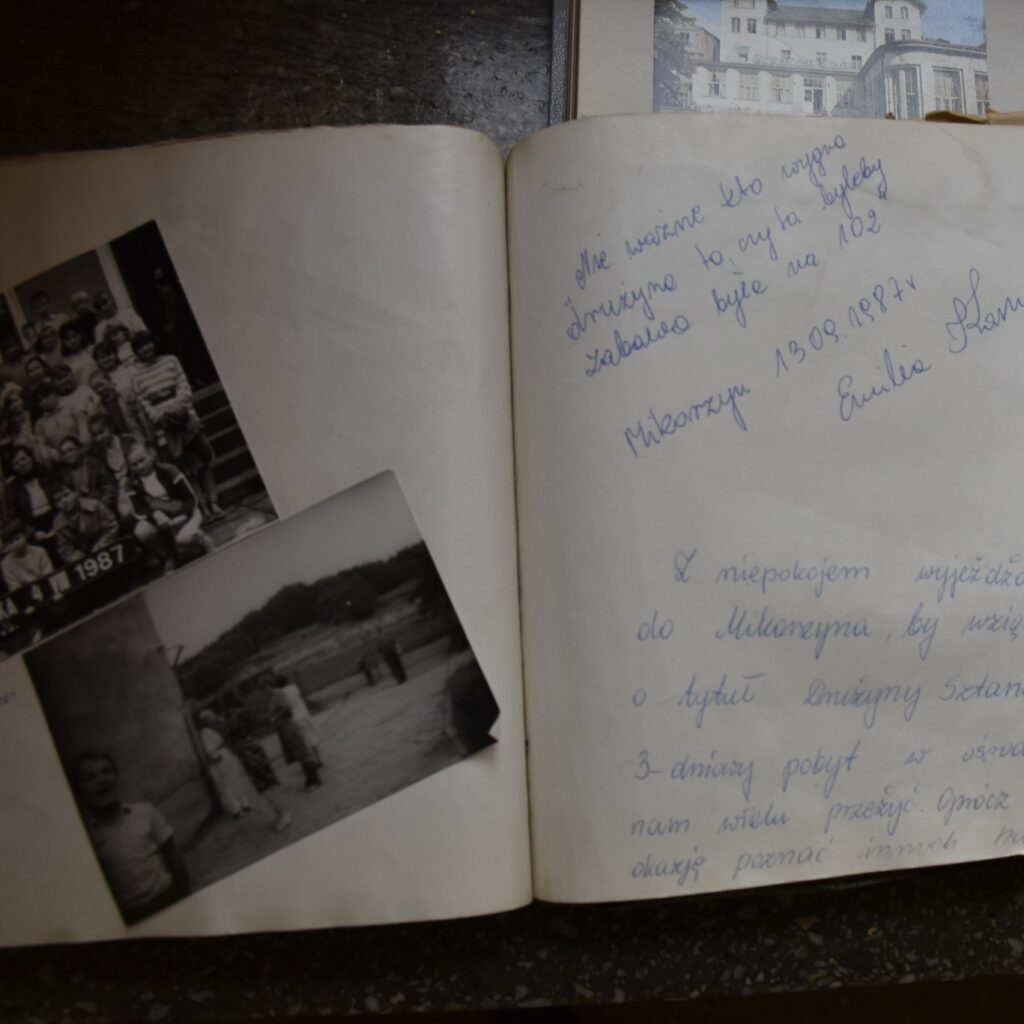 KA 4 VII 1987
"Nie ważne kto wygra
drużyna ta, czy ta byleby
zabawa była na 102"
Mikorzyn 13.09.1987r
Emilia
Z niepokojem
do Mikorzyna, by
o tytuł Drużyny
3-dniowy pobyt w
nam wielu przeżyć. Oprócz
okazję poznać innych